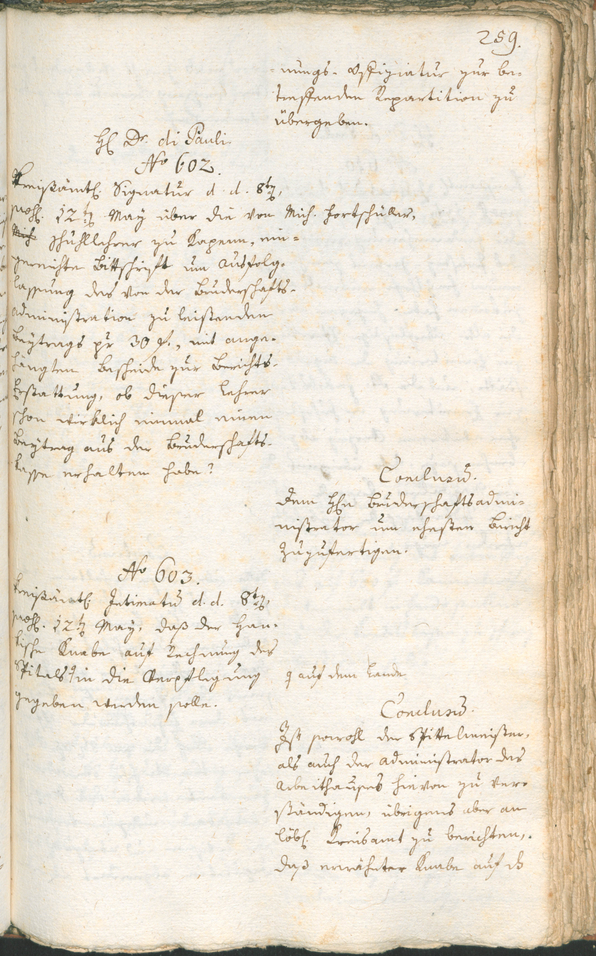 289.
-nungs-Offiziatur zur be-
treffenden Repartition zu
übergeben.
H Dr. di Pauli
No 602.
Kreisämtl. Signatur d. d. 8t
12t May über die von Mich. Hortschüller,
Schullehrer zu Kapenn, ein-
gereichte Bittschrift um Ausfolg-
lassung des von der Bruderschafts-
administration zu leistenden
Beytrags pr 30 f, mit ange-
hängtem Bescheide zur Berichts-
erstattung, ob dieser Lehrer
schon wirklich einmal einen
Beytrag aus der Bruderschafts-
kasse erhalten habe?
Conclusum.
Dem Hhn Bruderschaftsadmi-
nistrator um ehesten Bericht
zuzufertigen.
No 603.
Kreisämtl. Intimatum d. d. 8t
12t May, daß der Han-
lische Knabe auf Rechnung des
Spitals in die Verpflegung
gegeben werden solle.
auf dem Lande
Conclusum.
Ist sowohl der Spittelmeister,
als auch der Administrator des
Arbeithauses hievon zu ver-
ständigen, übrigens aber an
löbl. Kreisamt zu berichten,
daß erwähnter Knabe auf d